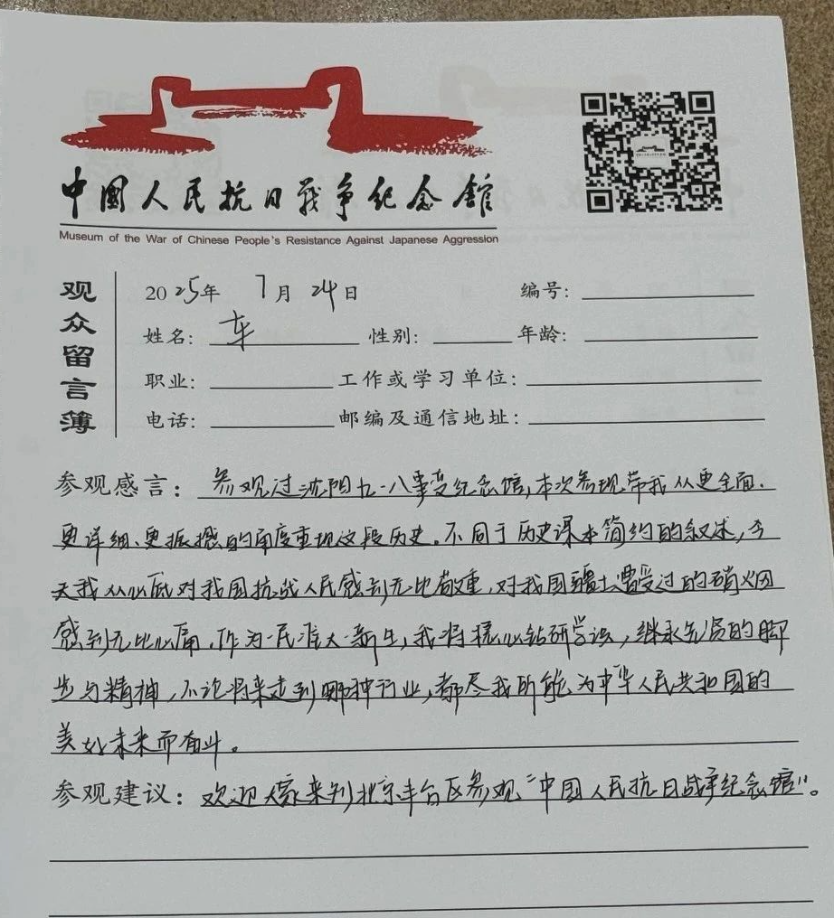 中國人民抗日戰争纪念館
Museum of the War of Chinese People's Resistance Against Japanese Aggression
观众留言簿
2025年 7月 24日 编号:
姓名: 车 性别: 年龄:
职业: 工作或学习单位:
电话: 邮编及通信地址:
参观感言: 参观过沈阳九一八事变纪念馆,本次参观带我从更全面、
更详细、更振撼的角度重现这段历史。不同于历史课本简约的叙述,今
天我从心底对我国抗战人民感到无比敬重,对我国疆土遭受过的硝烟
感到无比心痛。作为一民准大一新生,我将核心钻研学识,继承先辈的脚
步与精神,不论将来走到哪种行业,都尽我所能为中华人民共和国的
美好未来而奋斗。
参观建议: 欢迎大家来到北京丰台区参观“中国人民抗日战争纪念馆”。